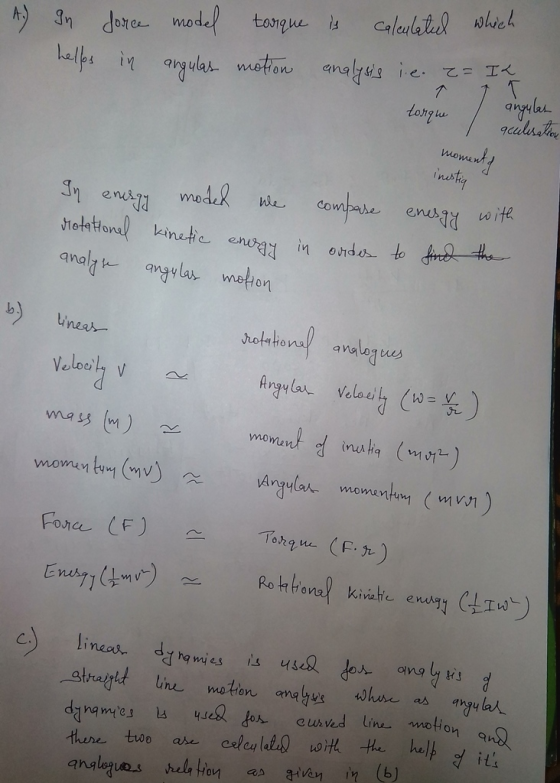 A.) In force model torque is calculated which
helps in angular motion analysis i.e. τ = Iα
torque
angular
acceleration
moment of
inertia
In energy model we compare energy with
rotational kinetic energy in order to find the
analyze angular motion
b.)
linear
rotational analogues
Velocity V ≃ Angular Velocity (W = V/r)
mass (m) ≃ moment of inertia (mr²)
momentum (mv) ≃ Angular momentum (mvr)
Force (F) ≃ Torque (F·r)
Energy (1/2 mv²) ≃ Rotational Kinetic energy (1/2 Iω²)
C.) linear dynamics is used for analysis of
straight line motion analysis where as angular
dynamics is used for curved line motion and
these two are calculated with the help of it's
analogues relation as given in (b)